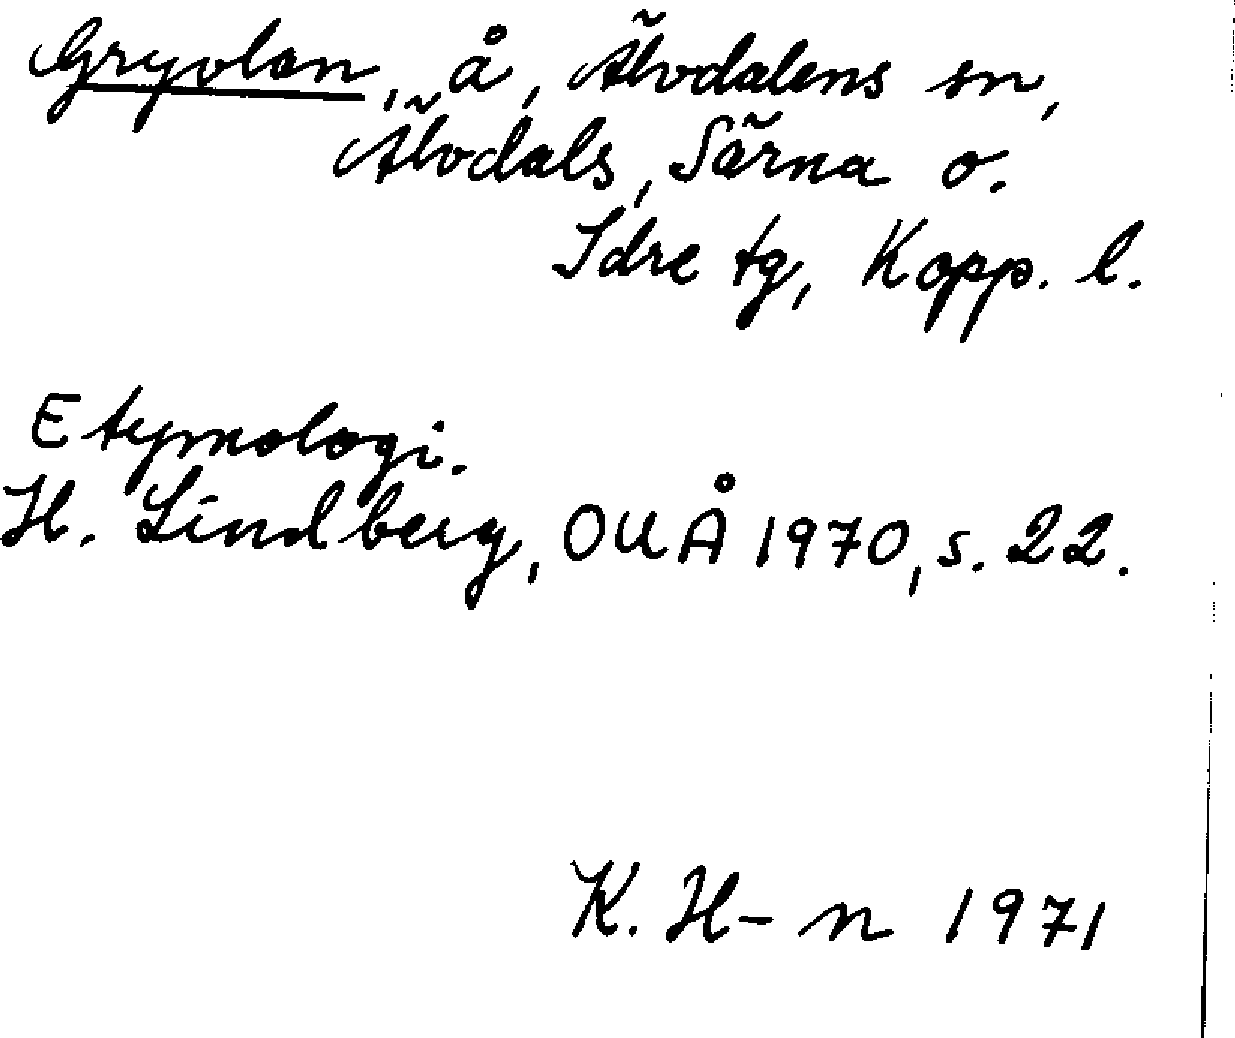 Gryvlan, å, Älvdalens sn,
Älvdals, Särna o.
Idre tg, Kopp. l.
Etymologi.
H. Lindberg, OUÅ 1970, s. 22.
K. H-n 1971